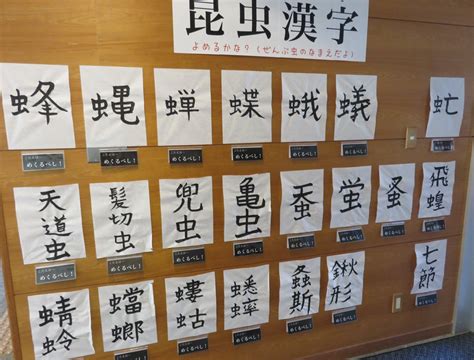 昆虫漢字
よめるかな?(ぜんぶ虫のなまえだよ)
蜂 蝿 蝉 蝶 蛾 蟻 虻
めくるべし! めくるべし! めくるべし! めくるべし! めくるべし! めくるべし! めくるべし!
天道虫 髪切虫 兜虫 亀虫 蚕 蛍 蚤 飛蝗
めくるべし! めくるべし! めくるべし! めくるべし! めくるべし! めくるべし! めくるべし! めくるべし!
蜻蛉 蟷螂 螻蛄 蟋蟀 螽斯 鍬形 七節
めくるべし! めくるべし! めくるべし! めくるべし! めくるべし!